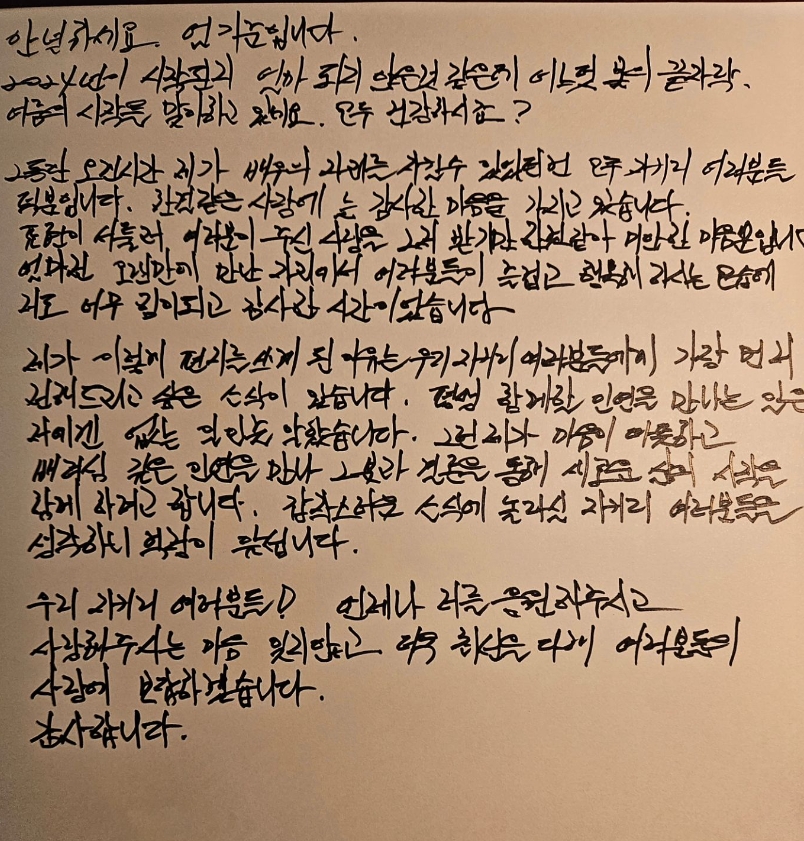 안녕하세요. 엄기준입니다.
2024년이 시작된지 얼마 되지 않은것 같은데 어느덧 봄의 끝자락.
여름의 시작을 맞이하고 있네요. 모두 건강하시죠?
그동안 오랜시간 제가 배우의 자리를 지킬수 있었던건 모두 자기리 여러분들
덕분입니다. 한결같은 사랑에 늘 감사한 마음을 가지고 있습니다.
표현이 서툴러 여러분이 주신 사랑을 그저 받기만 한것같아 미안한 마음뿐입니다
얼마전 오랜만에 만난 자리에서 여러분들이 즐겁고 행복해 하시는 모습에
저도 너무 힘이되고 감사한 시간이었습니다
제가 이렇게 편지를 쓰게 된 이유는 우리 자기리 여러분들에게 가장 먼저
전해드리고 싶은 소식이 있습니다. 평생 함께할 인연을 만나는 일은
저에겐 없는 일인듯 싶었습니다. 그런 제가 마음이 따뜻하고
배려심 깊은 인연을 만나 그분과 결혼을 통해 새로운 삶의 시작을
함께 하려고 합니다. 갑작스러운 소식에 놀라실 자기리 여러분들을
생각하니 걱정이 앞섭니다.
우리 자기리 여러분들! 언제나 저를 응원해주시고
사랑해주시는 마음 잊지않고 더욱 최선을 다해 여러분들의
사랑에 보답하겠습니다.
감사합니다.